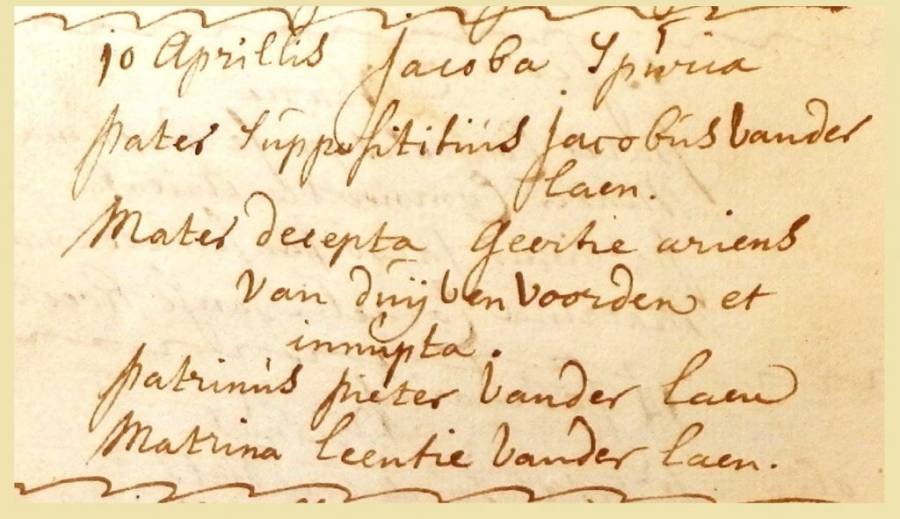 10 Aprillis Jacoba Spuria
pater Supposititius Jacobus vander
laen.
Mater decepta Geertie ariens
van duijvenvoorden et
innupta.
patrinus pieter vander laen
Matrina leentie vander laen.